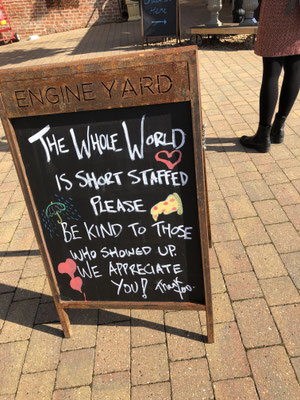 ENGINE YARD
THE WHOLE WORLD
IS SHORT STAFFED
PLEASE
BE KIND TO THOSE
WHO SHOWED UP.
WE APPRECIATE
YOU!